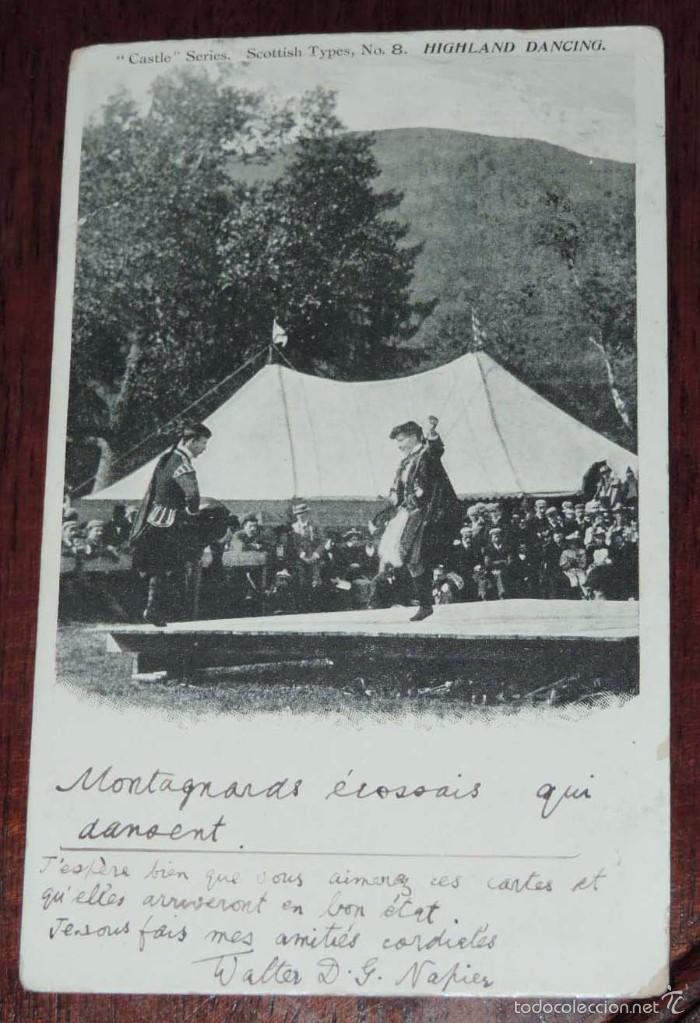 "Castle" Series. Scottish Types, No. 8. HIGHLAND DANCING.
Montagnards écossais qui
dansent.
J'espère bien que vous aimerez ces cartes et
qu'elles arriveront en bon état.
Je vous fais mes amitiés cordiales
Walter D. G. Napier
todocoleccion.net